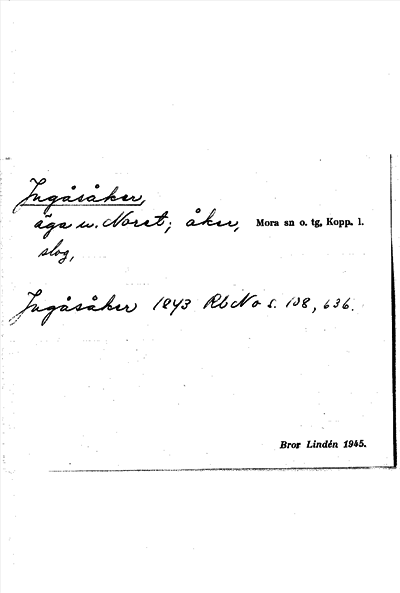 Ingåsåker,
äga u. Noret; åker, Mora sn o. tg, Kopp. l.
slog,
Ingåsåker 1843 RbNo s. 108, 636.
Bror Lindén 1945.